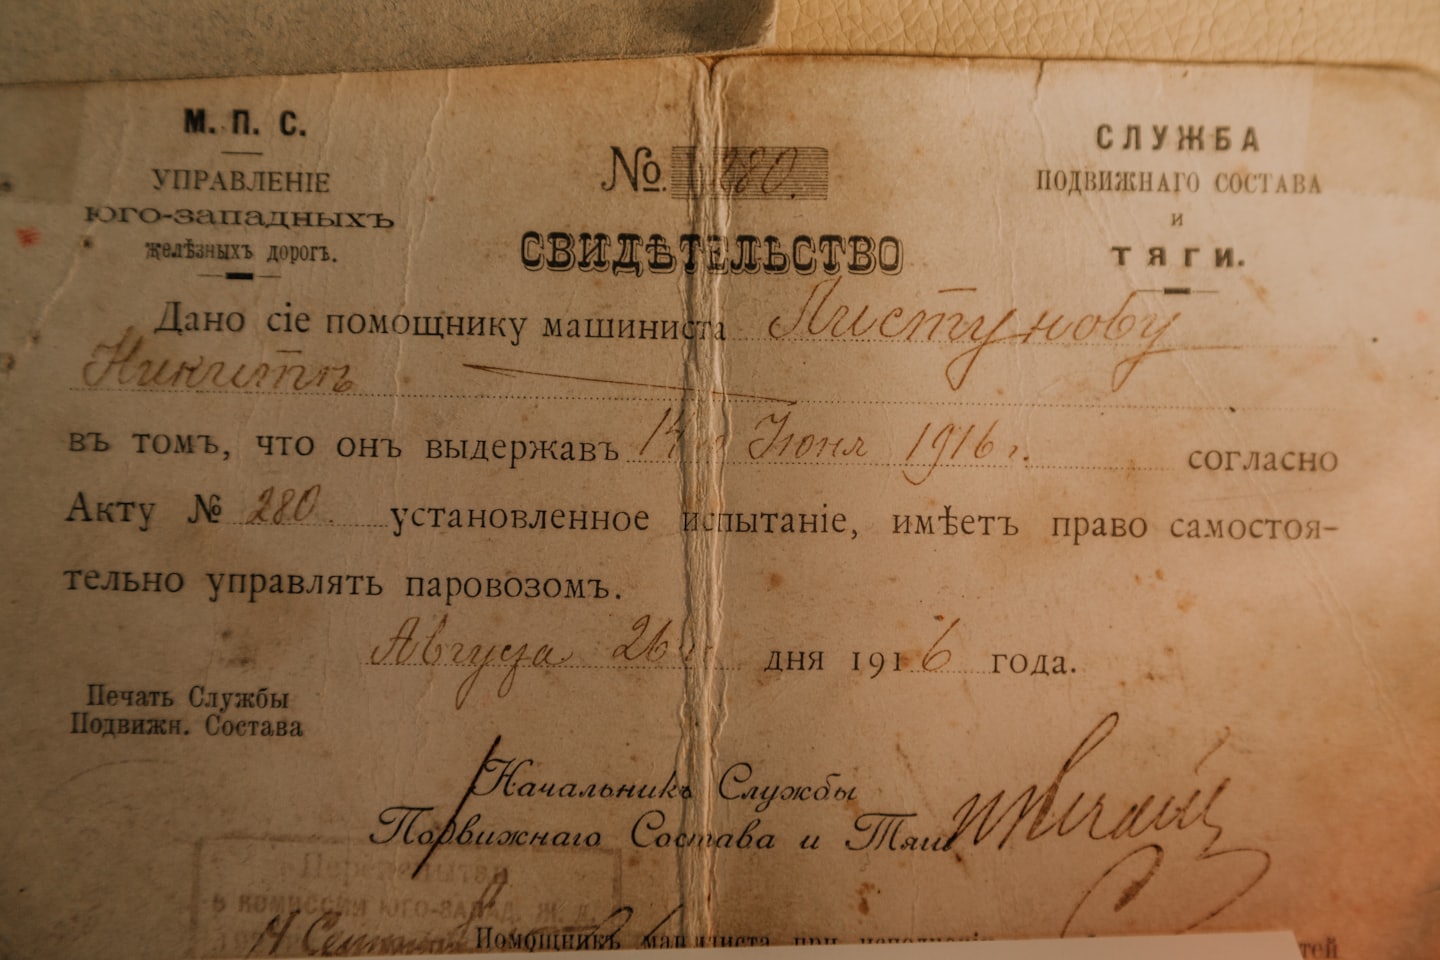 М. П. С.
УПРАВЛЕНІЕ
ЮГО-ЗАПАДНЫХЪ
желѣзныхъ дорогъ.
№ 280.
СВИДѢТЕЛЬСТВО
СЛУЖБА
ПОДВИЖНАГО СОСТАВА
И
ТЯГИ.
Дано сіе помощнику машиниста Листунову
Никитѣ
въ томъ, что онъ выдержавъ 14го Іюня 1916 г. согласно
Акту № 280. установленное испытаніе, имѣетъ право самостоя-
тельно управлять паровозомъ.
Августа 26 дня 1916 года.
Печать Службы
Подвижн. Состава
Начальникъ Службы
Подвижнаго Состава и Тяги
в комиссии ЮГО-ЗАПАД. Ж. Д.
Помощникъ машиниста при